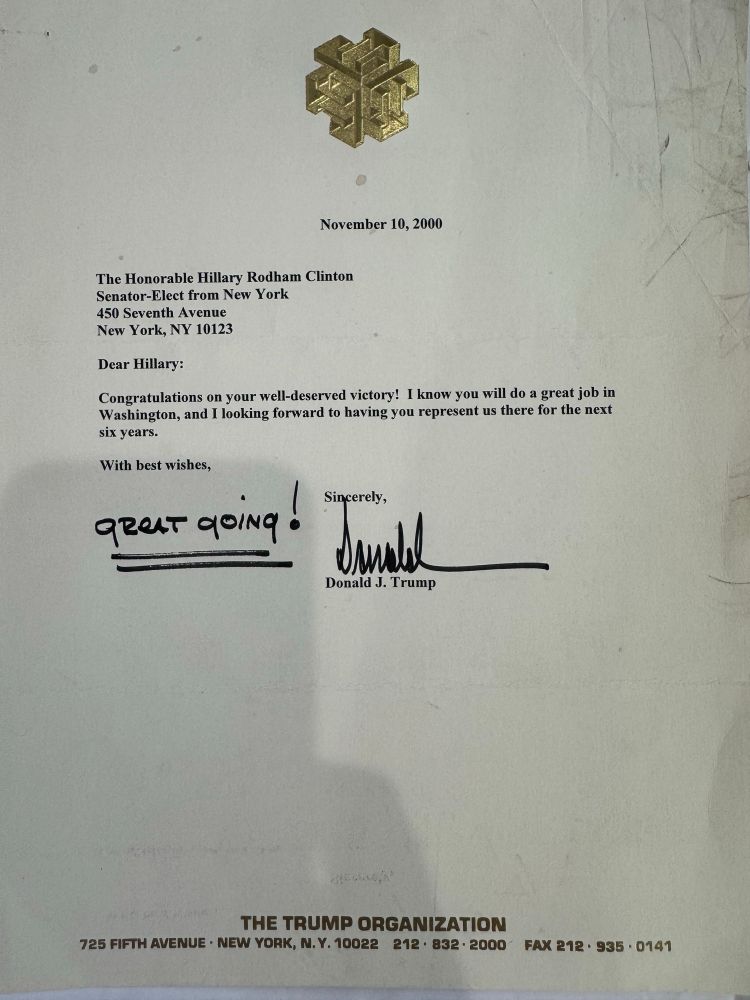 November 10, 2000
The Honorable Hillary Rodham Clinton
Senator-Elect from New York
450 Seventh Avenue
New York, NY 10123
Dear Hillary:
Congratulations on your well-deserved victory!  I know you will do a great job in
Washington, and I looking forward to having you represent us there for the next
six years.
With best wishes,
Sincerely,
GREAT GOING!
Donald
Donald J. Trump
THE TRUMP ORGANIZATION
725 FIFTH AVENUE · NEW YORK, N.Y. 10022  212 · 832 · 2000  FAX 212 · 935 · 0141